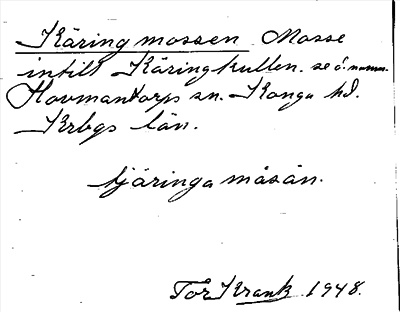 Käringmossen Mosse
intill Käringkullen. se d. namn.
Hovmantorps sn. Konga hd.
Krbgs län.
tjäringa måsàn.
Tor Krank 1948.